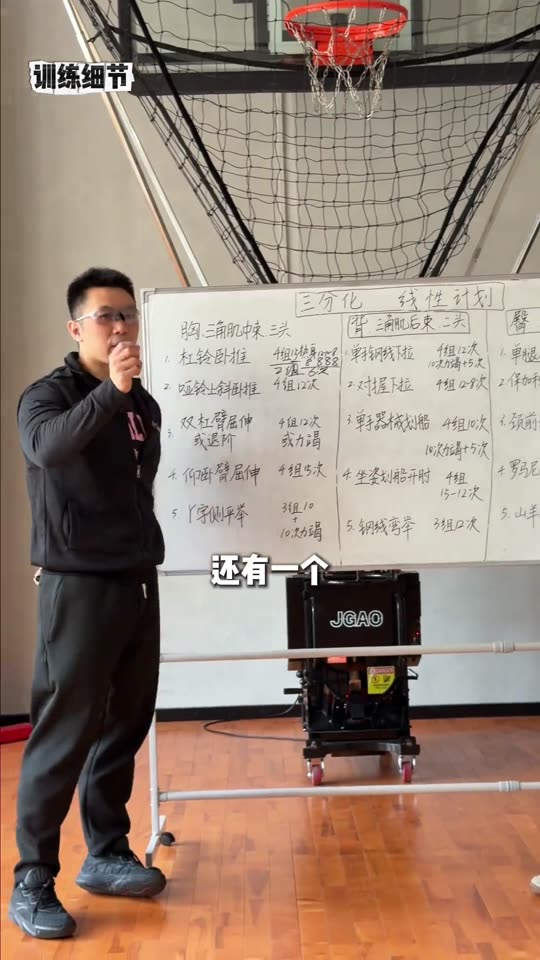 训练细节
三分化 线性计划
胸.三角肌中束 三头
1. 杠铃卧推 4组
2. 哑铃上斜卧推 4组12次
3. 双杠臂屈伸 4组12次
或退阶 或力竭
4. 仰卧臂屈伸 4组15次
5. 丫字侧平举 3组10
+
10次力竭
背 三角肌后束 二头
1. 单手钢线下拉 4组12次
10次力竭+5次
2. 对握下拉 4组12-8次
3. 单手器械划船 4组10次
10次力竭+5次
4. 坐姿划船开肘 4组
15-12次
5. 钢线弯举 3组12次
臀
1. 单腿
2. 保加利
3. 颈前
4. 罗马尼
5. 山羊
还有一个
JGAO